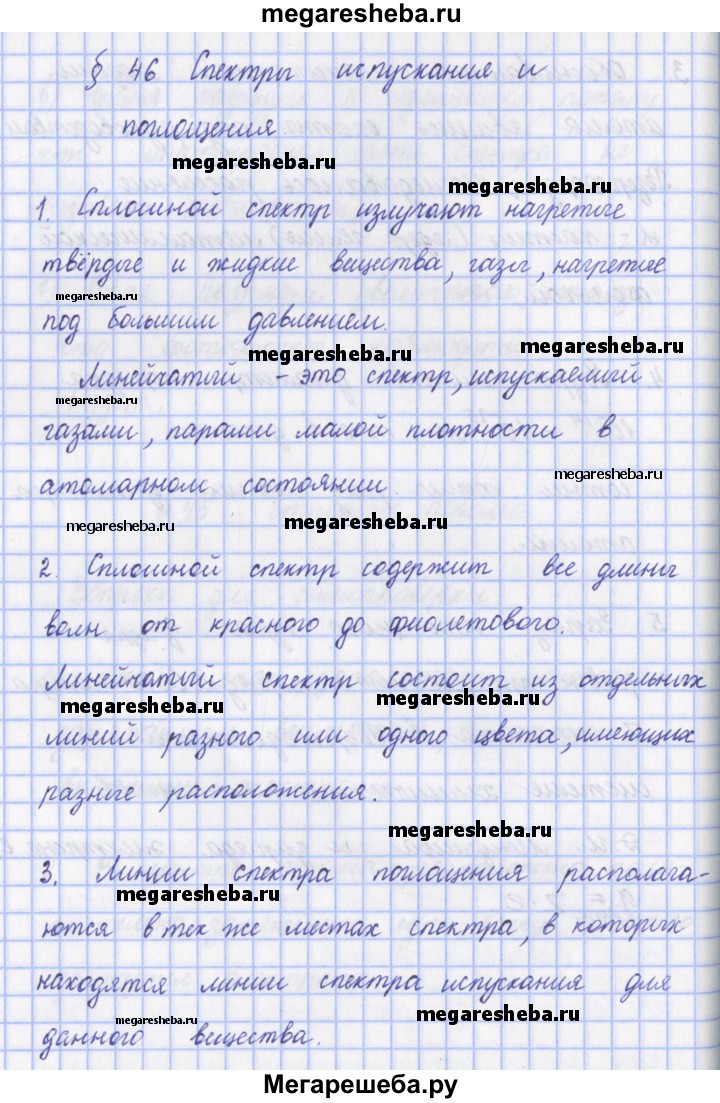 megaresheba.ru
§ 46 Спектры испускания и
поглощения.
megaresheba.ru
megaresheba.ru
1. Сплошной спектр излучают нагретые
твёрдые и жидкие вещества, газы, нагретые
megaresheba.ru
под большим давлением.
megaresheba.ru
megaresheba.ru
Линейчатый - это спектр, испускаемый
megaresheba.ru
газами, парами малой плотности в
megaresheba.ru
атомарном состоянии.
megaresheba.ru
megaresheba.ru
2. Сплошной спектр содержит все длины
волн от красного до фиолетового.
Линейчатый спектр состоит из отдельных
megaresheba.ru
megaresheba.ru
линий разного или одного цвета, имеющих
разные расположения.
megaresheba.ru
3. Линии спектра поглощения располага-
megaresheba.ru
ются в тех же местах спектра, в которых
находятся линии спектра испускания для
megaresheba.ru
megaresheba.ru
данного вещества.
Мегарешеба.ру